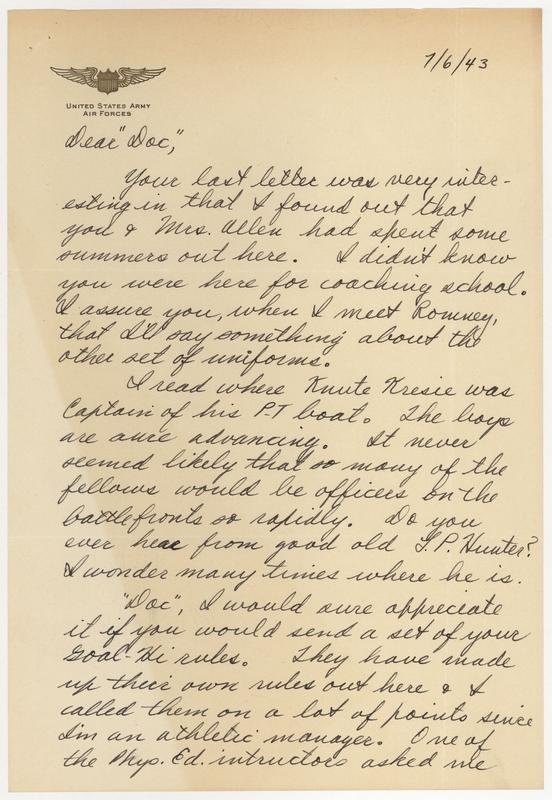 7/6/43
UNITED STATES ARMY
AIR FORCES
Dear "Doc",
Your last letter was very inter-
esting in that I found out that
you & Mrs. Allen had spent some
summers out here. I didn't know
you were here for coaching school.
I assure you, when I meet Romney,
that I'll say something about the
other set of uniforms.
I read where Knute Kresie was
Captain of his P-T boat. The boys
are sure advancing. It never
seemed likely that so many of the
fellows would be officers on the
battlefronts so rapidly. Do you
ever hear from good old T.P. Hunter?
I wonder many times where he is.
"Doc", I would sure appreciate
it if you would send a set of your
Goal-Hi rules. They have made
up their own rules out here & I
called them on a lot of points since
I'm an athletic manager. One of
the Phys. Ed. intructors asked me